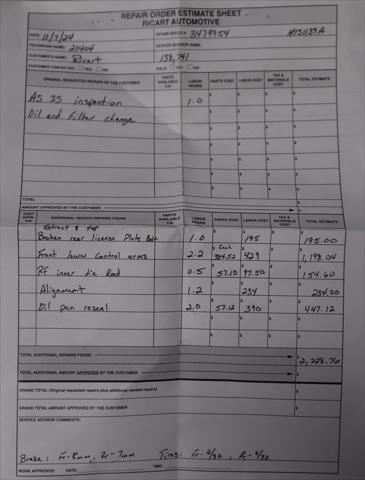 REPAIR ORDER ESTIMATE SHEET
RICART AUTOMOTIVE
DATE: 11/7/24 REPAIR ORDER #: 3479954
TECHNICIAN NAME: 21404 SERVICE ADVISOR NAME:
CUSTOMER'S NAME: Ricart 138,741
CUSTOMER CONTACTED: YES NO SOLD: YES NO
ORIGINAL REQUESTED REPAIRS BY THE CUSTOMER PARTS AVAILABLE Y/N LABOR HOURS PARTS COST LABOR COST TAX & MATERIALS COST TOTAL ESTIMATE
AS IS inspection 1.0
Oil and Filter change
TOTAL
AMOUNT APPROVED BY THE CUSTOMER
CUST. APPR. Y/N ADDITIONAL NEEDED REPAIRS FOUND PARTS AVAILABLE Y/N LABOR HOURS PARTS COST LABOR COST TAX & MATERIALS COST TOTAL ESTIMATE
Extract & Tap
Broken rear license Plate Bolt 1.0 195 195.00
Front lower control arms 2.2 Each 384.52 429 1,198.04
RF inner tie Rod 0.5 57.10 97.50 154.60
Alignment 1.2 234 234.00
Oil pan reseal 2.0 57.12 390 447.12
TOTAL ADDITIONAL REPAIRS FOUND $ 2,228.76
TOTAL ADDITIONAL AMOUNT APPROVED BY THE CUSTOMER $
GRAND TOTAL (Original requested repairs plus additional needed repairs) $
GRAND TOTAL AMOUNT APPROVED BY THE CUSTOMER $
SERVICE ADVISOR COMMENTS:
Brake: Fr-8mm, Rr-7mm Tires: Fr-6/32, Rr-6/32
WORK APPROVED DATE: TIME: